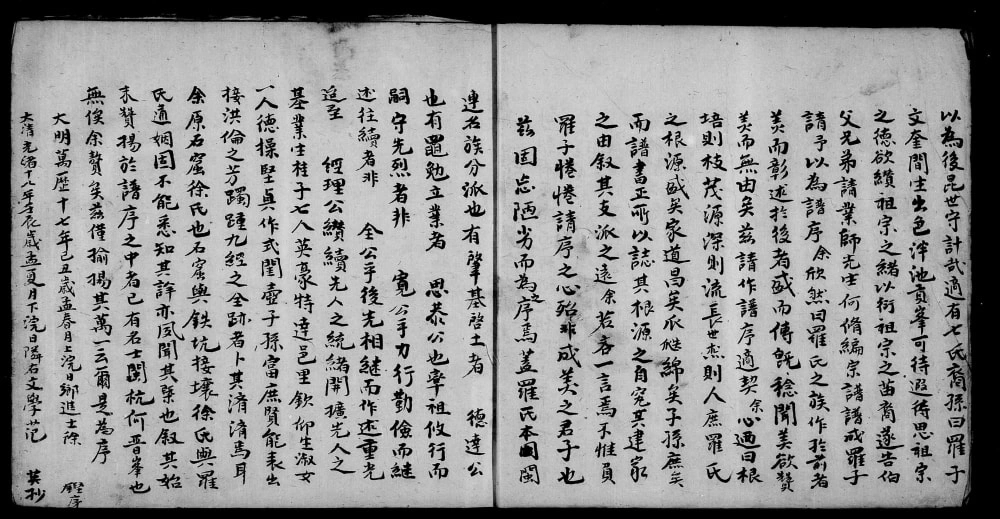 以為後昆世守計哉適有七氏裔孫曰羅子
文奎間生出色泮池貢峯可待遐待思祖宗
之德欲纘祖宗之緒以衍祖宗之苗裔遂告伯
父兄弟請業師先生何脩編宗譜譜成羅子
請予以為譜序余欣然曰羅氏之族作於前者
美而彰述於後者盛而傳毓稔聞美欲贊
美而無由矣茲請作譜序適契余心廼曰根
培則枝茂源深則流長世系則人庶羅氏
之根源盛矣家道昌矣瓜瓞綿矣子孫庶矣
而譜書正所以誌其根源之自完其建家
之由叙其支派之遠余若吝一言焉不惟負
羅子惓惓請序之心殆非成美之君子也
茲固忘陋劣而為之序焉蓋羅氏本國閩
連名族分派也有肇基啓土者 德達公
也有黽勉立業者 思恭公也率祖攸行而
嗣守先烈者非 寬公乎力行勤儉而継
述往績者非 全公乎後先相継而作述重光
迨至 經理公纘續先人之統緒開擴先人之
基業生桂子七人英豪特達邑里欽仰生淑女
一人德操堅貞作式閨壼子孫富庶賢能表出
接洪倫之芳躅踵九經之全跡者卜其濟濟焉耳
余原石窟徐氏也石窟與鉄坑接壤徐氏與羅
氏通姻固不能悉知其詳亦夙聞其槩也叙其始
末贊揚於譜序之中者已有名士閩杭何晋峯也
無俟余贅矣茲僅揄揚其萬一云爾是為序
大明萬歷十七年己丑歲孟春月上浣日鄉進士除
大清光緒十八年壬辰歲孟夏月下浣日隣右文學范
殿序
英抄